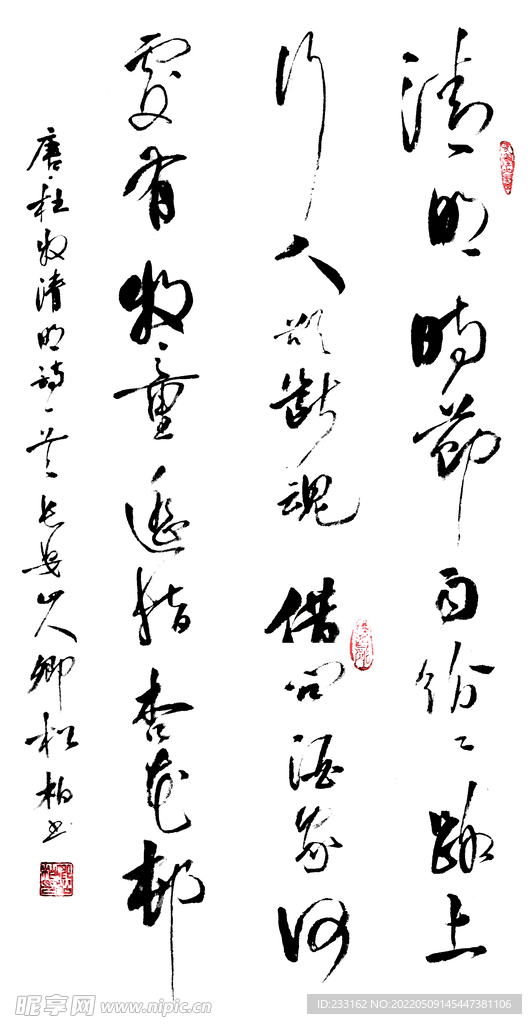 清明時節雨紛々路上
行人欲斷魂借問酒家何
處有牧童遥指杏花邨
唐杜牧清明詩一首長安山人卿松柏書
昵享网 www.nipic.cn
ID:233162 NO:20220509145447381106